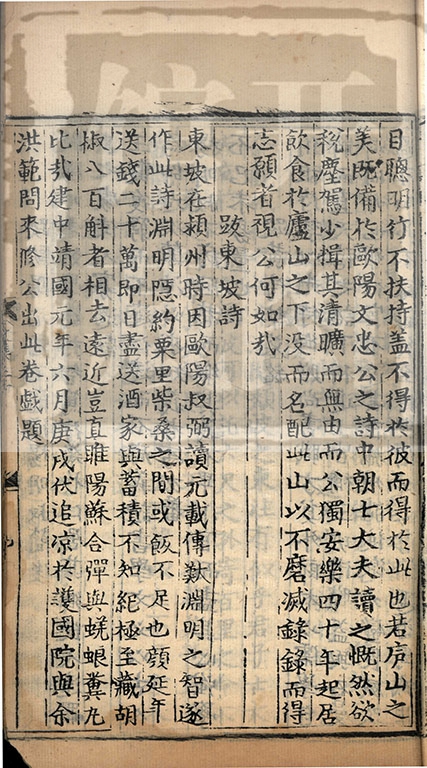 目聰明行不扶持蓋不得於彼而得於此也若庐山之
美既備於歐陽文忠公之詩中朝士大夫讀之慨然欲
稅塵駕少揖其清曠而無由而公獨安樂四十年起居
飲食於廬山之下没而名配此山以不磨滅錄錄而得
志願者視公何如哉
跋東坡詩
東坡在潁州時因歐陽叔弼讀元載傳歎淵明之智遂
作此詩淵明隱約栗里柴桑之間或飯不足也顏延年
送錢二十萬即日盡送酒家與蓄積不知紀極至藏胡
椒八百斛者相去遠近豈直睢陽蘇合彈與蜣蜋糞丸
比哉建中靖國元年六月庚戌伏追凉於護國院與余
洪範問來修公出此卷戲題